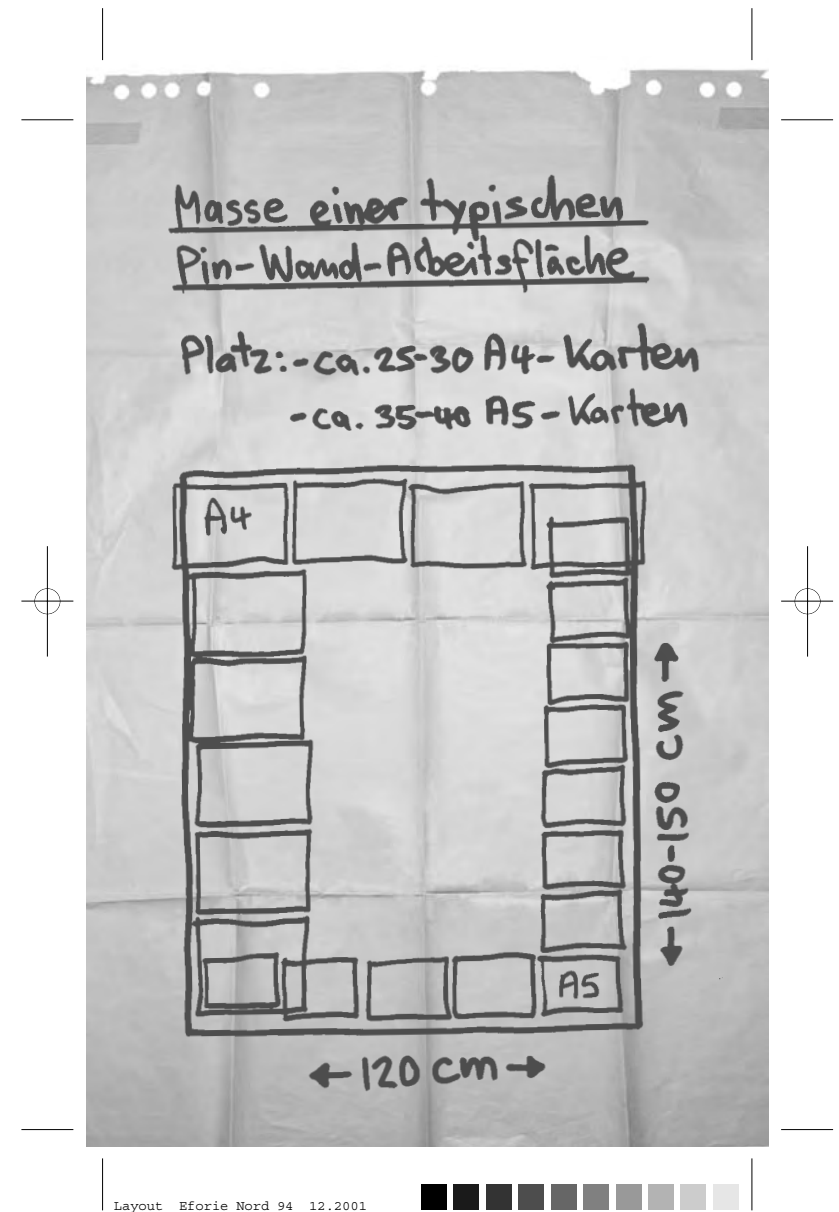 Masse einer typischen
Pin-Wand-Arbeitsfläche
Platz: - ca. 25-30 A4 - Karten
- ca. 35-40 A5 - Karten
A4
140-150 cm
A5
120 cm
Layout Eforie Nord 94 12.2001